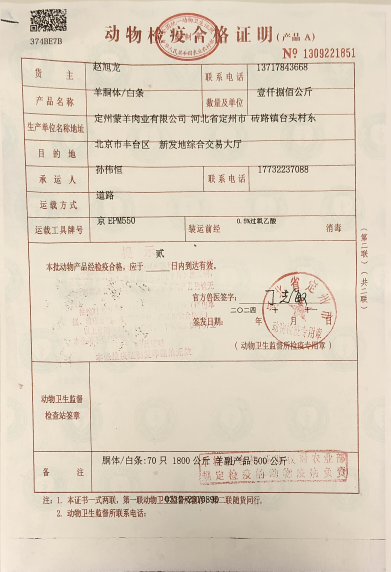 374BE7B
动物检疫合格证明(产品 A)
№ 1309221851
货 主 赵旭龙 联系电话 13717843668
产品名称 羊胴体/白条 数量及单位 壹仟捌佰公斤
生产单位名称地址 定州蒙羊肉业有限公司 河北省定州市 砖路镇台头村东
目的地 北京市丰台区 新发地综合交易大厅
承运人 孙伟恒 联系电话 17732237088
运载方式 道路
运载工具牌号 京EPM550 装运前经 0.5%过氧乙酸 消毒
本批动物产品经检疫合格,应于 贰 日内到达有效。
官方兽医签字:
签发日期: 二〇二四 年 十 月 十
(动物卫生监督所检疫专用章)
动物卫生监督
检查站签章
备 注 胴体/白条:70 只 1800 公斤 羊副产品 500 公斤
注:1. 本证书一式两联,第一联动物卫生监督所留存,第二联随货同行。
2. 动物卫生监督所联系电话:
(第二联)
(共二联)